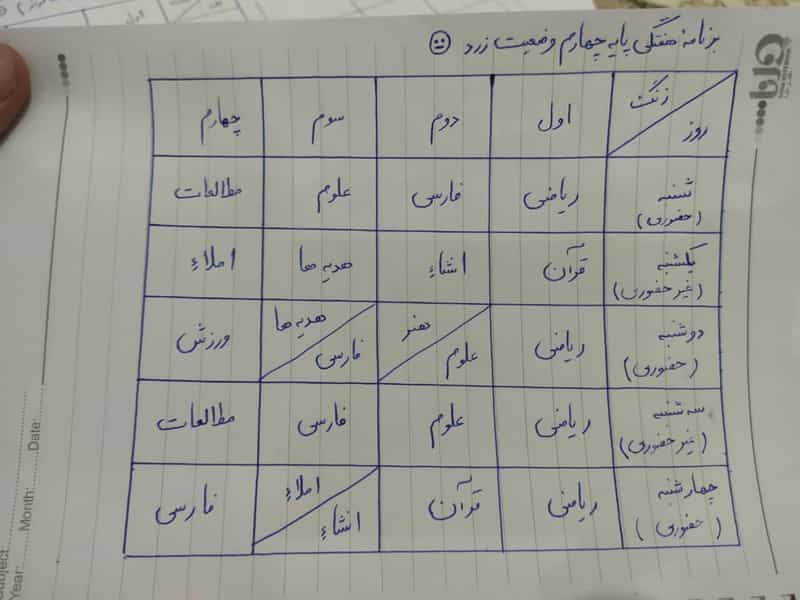 برنامه هفتگی پایه چهارم وضعیت زرد
زنگ
روز
اول
دوم
سوم
چهارم
شنبه
(حضوری)
ریاضی
فارسی
علوم
مطالعات
یکشنبه
(غیر حضوری)
قرآن
انشاء
هدیه ها
املاء
دوشنبه
(حضوری)
ریاضی
هنر
علوم
هدیه ها
فارسی
ورزش
سه شنبه
(غیر حضوری)
ریاضی
علوم
فارسی
مطالعات
چهارشنبه
(حضوری)
ریاضی
قرآن
املاء
انشاء
فارسی
Subject:
Year: Month: Date: